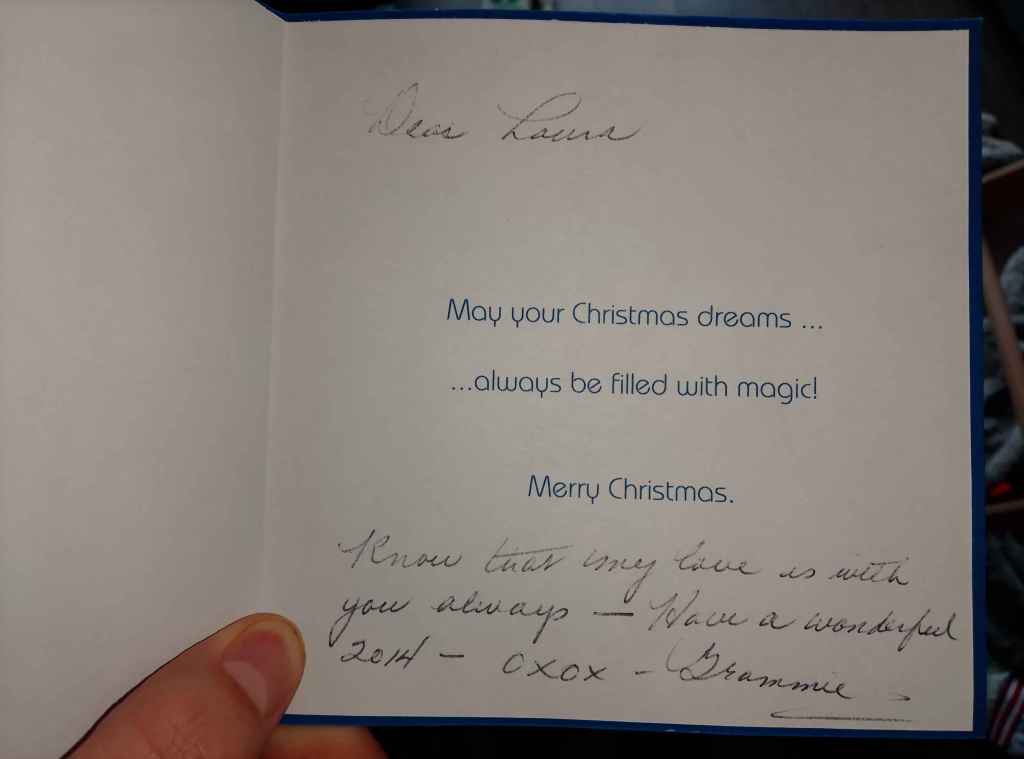 Dear Laura
May your Christmas dreams ...
...always be filled with magic!
Merry Christmas.
Know that my love is with
you always — Have a wonderful
2014 — OXOX — Grammie